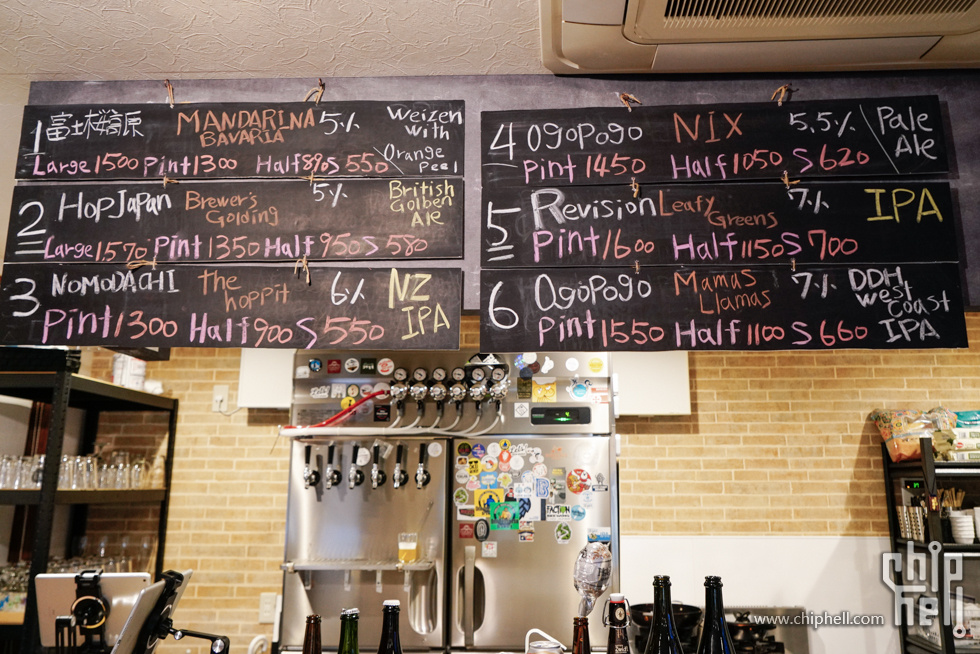 1 富士桜高原 MANDARINA BAVARIA 5% Weizen with Orange Peel
Large 1500 Pint 1300 Half 890 S 550
2 HopJapan Brewer's Golding 5% British Golben Ale
Large 1570 Pint 1350 Half 950 S 580
3 NOMODACHI The hoppit 6% NZ IPA
Pint 1300 Half 900 S 550
4 OgoPogo NIX 5,5% Pale Ale
Pint 1450 Half 1050 S 620
5 Revision Leafy Greens 7% IPA
Pint 1600 Half 1150 S 700
6 OgoPogo Mamas Llamas 7% DDH West Coast IPA
Pint 1550 Half 1100 S 660
chip hell
www.chiphell.com